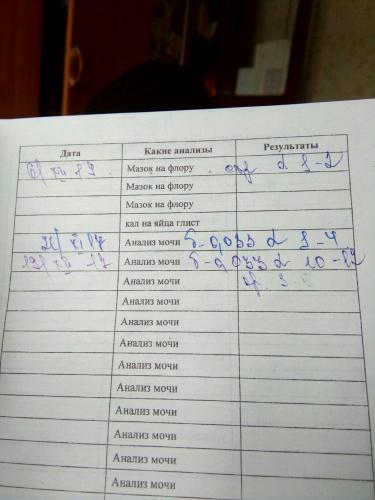 Дата Какие анализы Результаты
Мазок на флору
Мазок на флору
Мазок на флору
кал на яйца глист
Анализ мочи б-0,033 L 3-4
Анализ мочи б-0,033 L 10-12
Анализ мочи
Анализ мочи
Анализ мочи
Анализ мочи
Анализ мочи
Анализ мочи
Анализ мочи
Анализ мочи
Анализ мочи
Анализ мочи